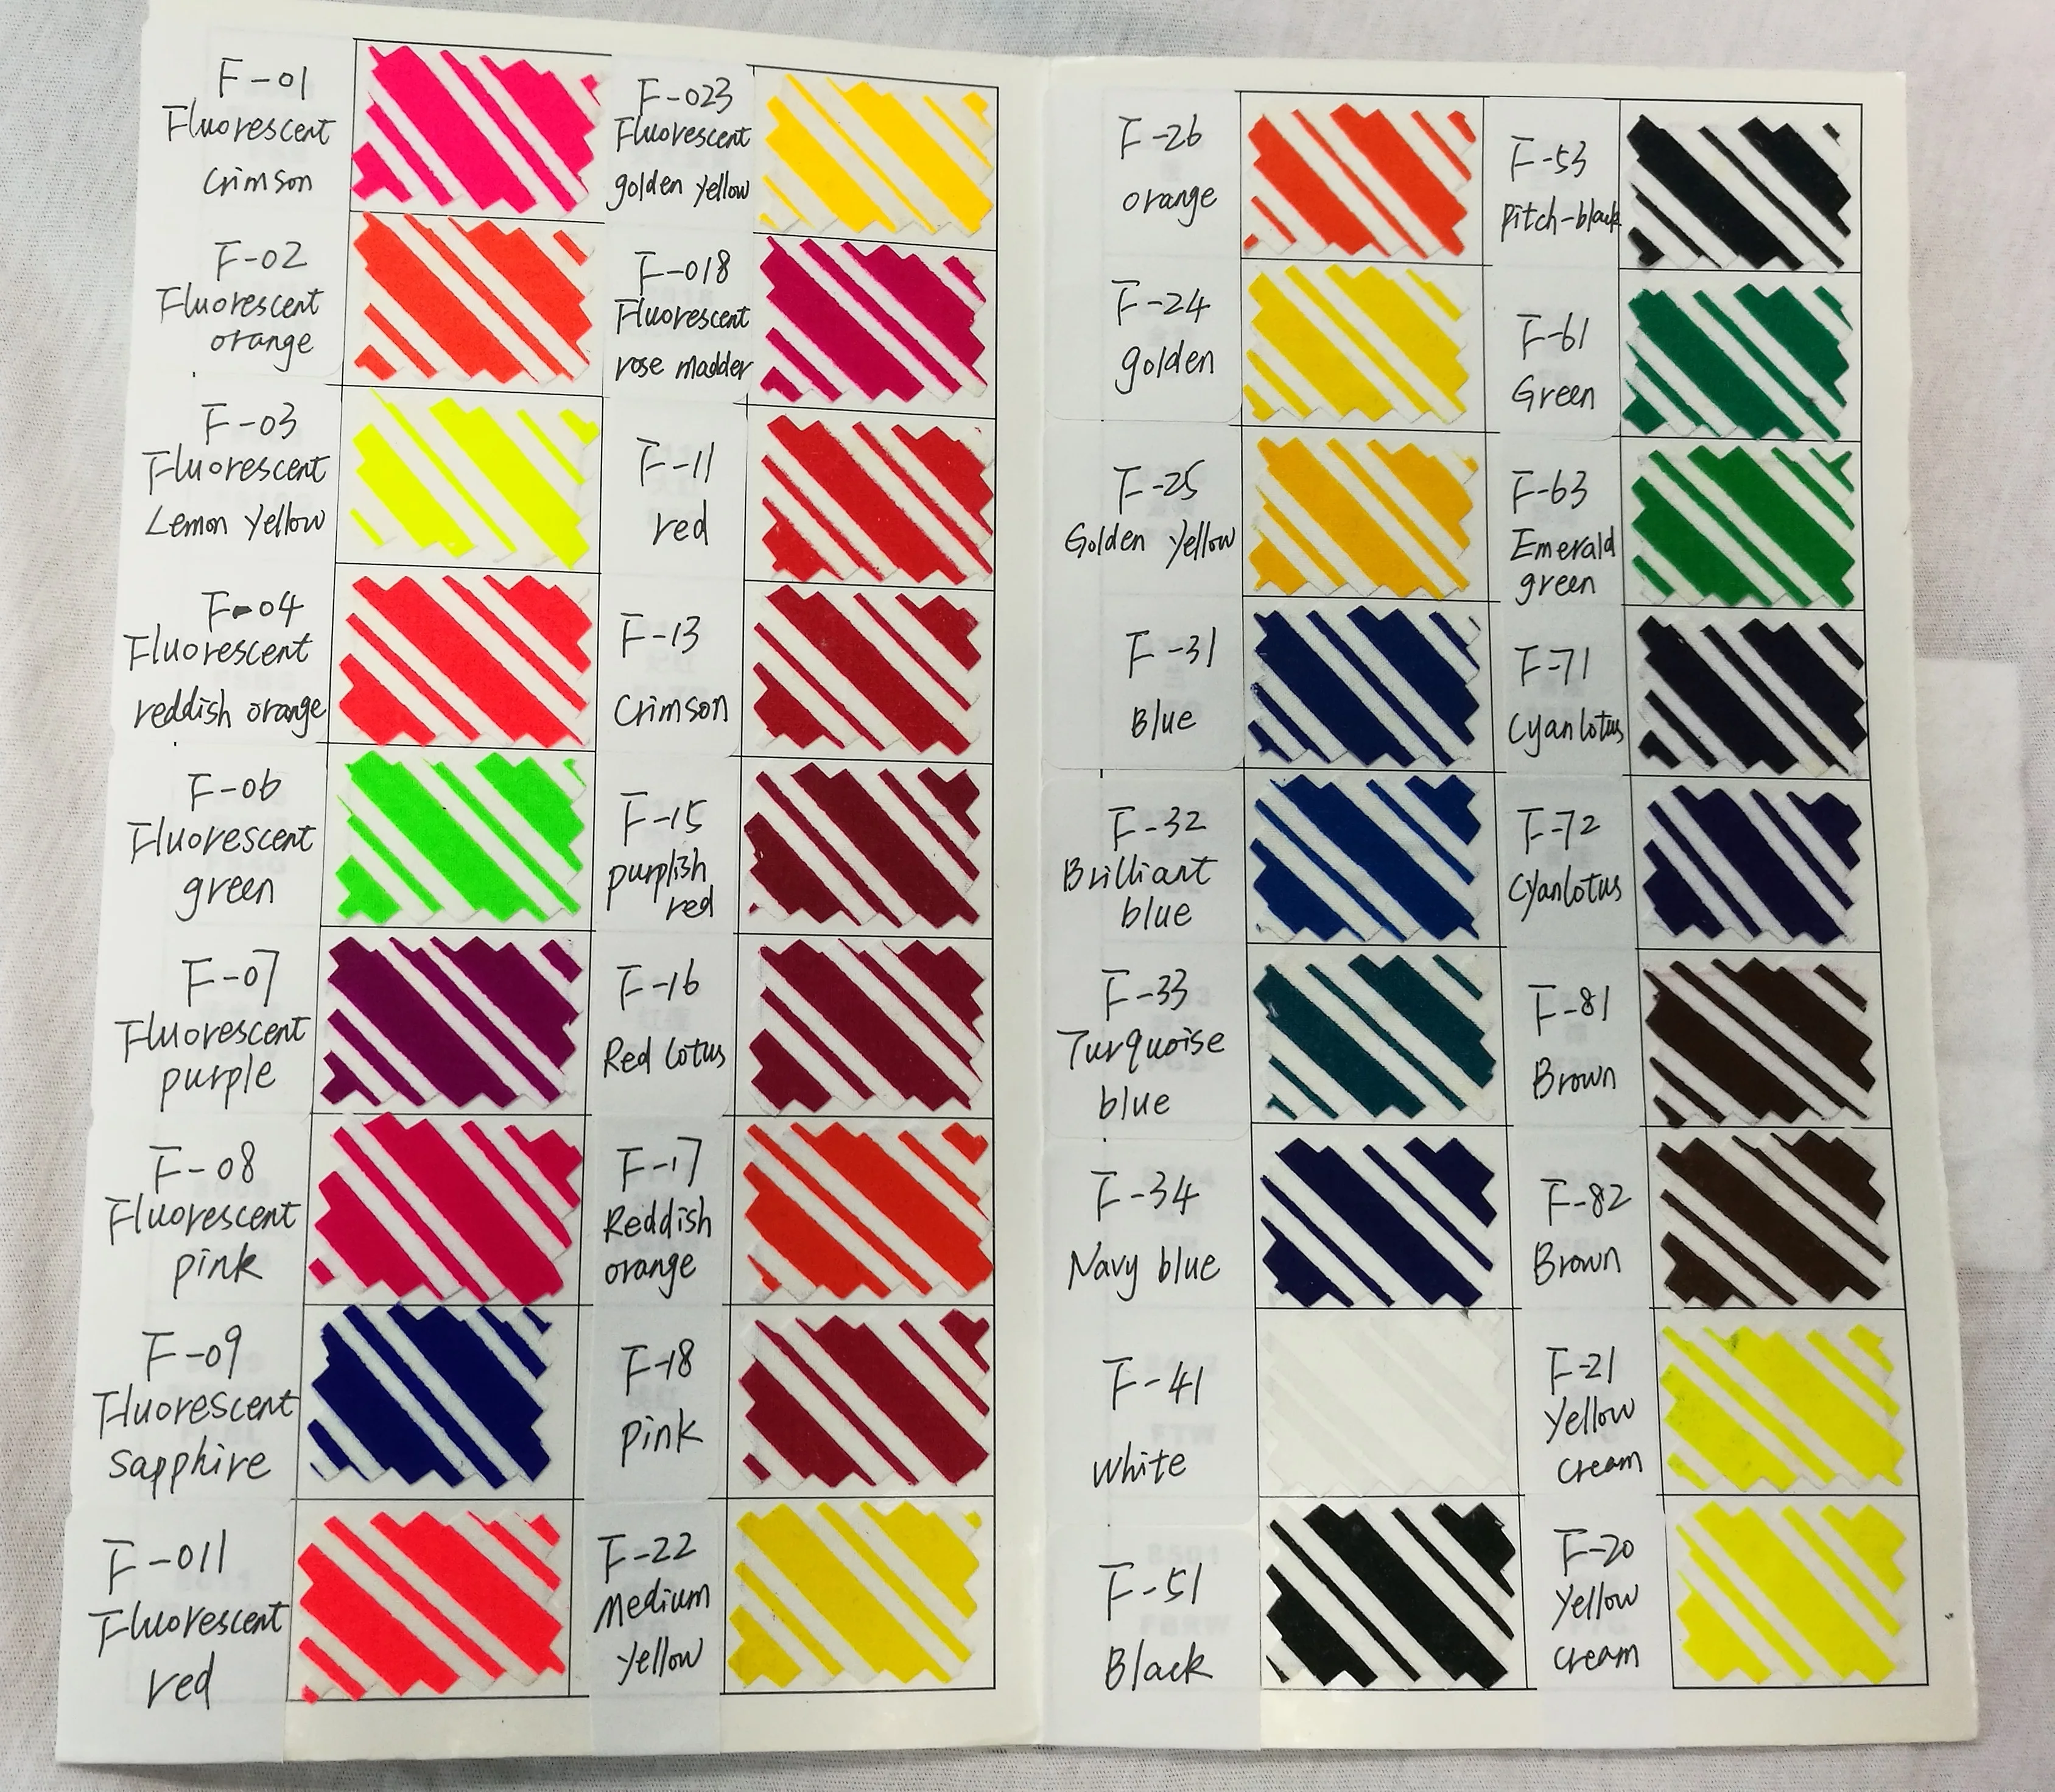 F-01
Fluorescent
Crimson
F-02
Fluorescent
orange
F-03
Fluorescent
Lemon Yellow
F-04
Fluorescent
reddish orange
F-06
Fluorescent
green
F-07
Fluorescent
purple
F-08
Fluorescent
pink
F-09
Fluorescent
sapphire
F-011
Fluorescent
red
F-023
Fluorescent
golden yellow
F-018
Fluorescent
rose madder
F-11
red
F-13
Crimson
F-15
purplish
red
F-16
Red lotus
F-17
Reddish
orange
F-18
pink
F-22
Medium
yellow
F-26
orange
F-24
golden
F-25
Golden Yellow
F-31
Blue
F-32
Brilliant
blue
F-33
Turquoise
blue
F-34
Navy blue
F-41
white
F-51
Black
F-53
pitch-black
F-61
Green
F-63
Emerald
green
F-71
Cyanlotus
F-72
Cyanlotus
F-81
Brown
F-82
Brown
F-21
Yellow
cream
F-20
Yellow
cream